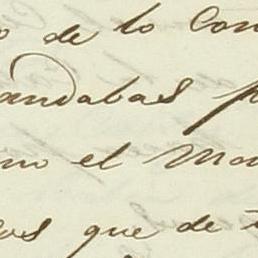 o de lo Con
andabas p
mo el Mar
os que de